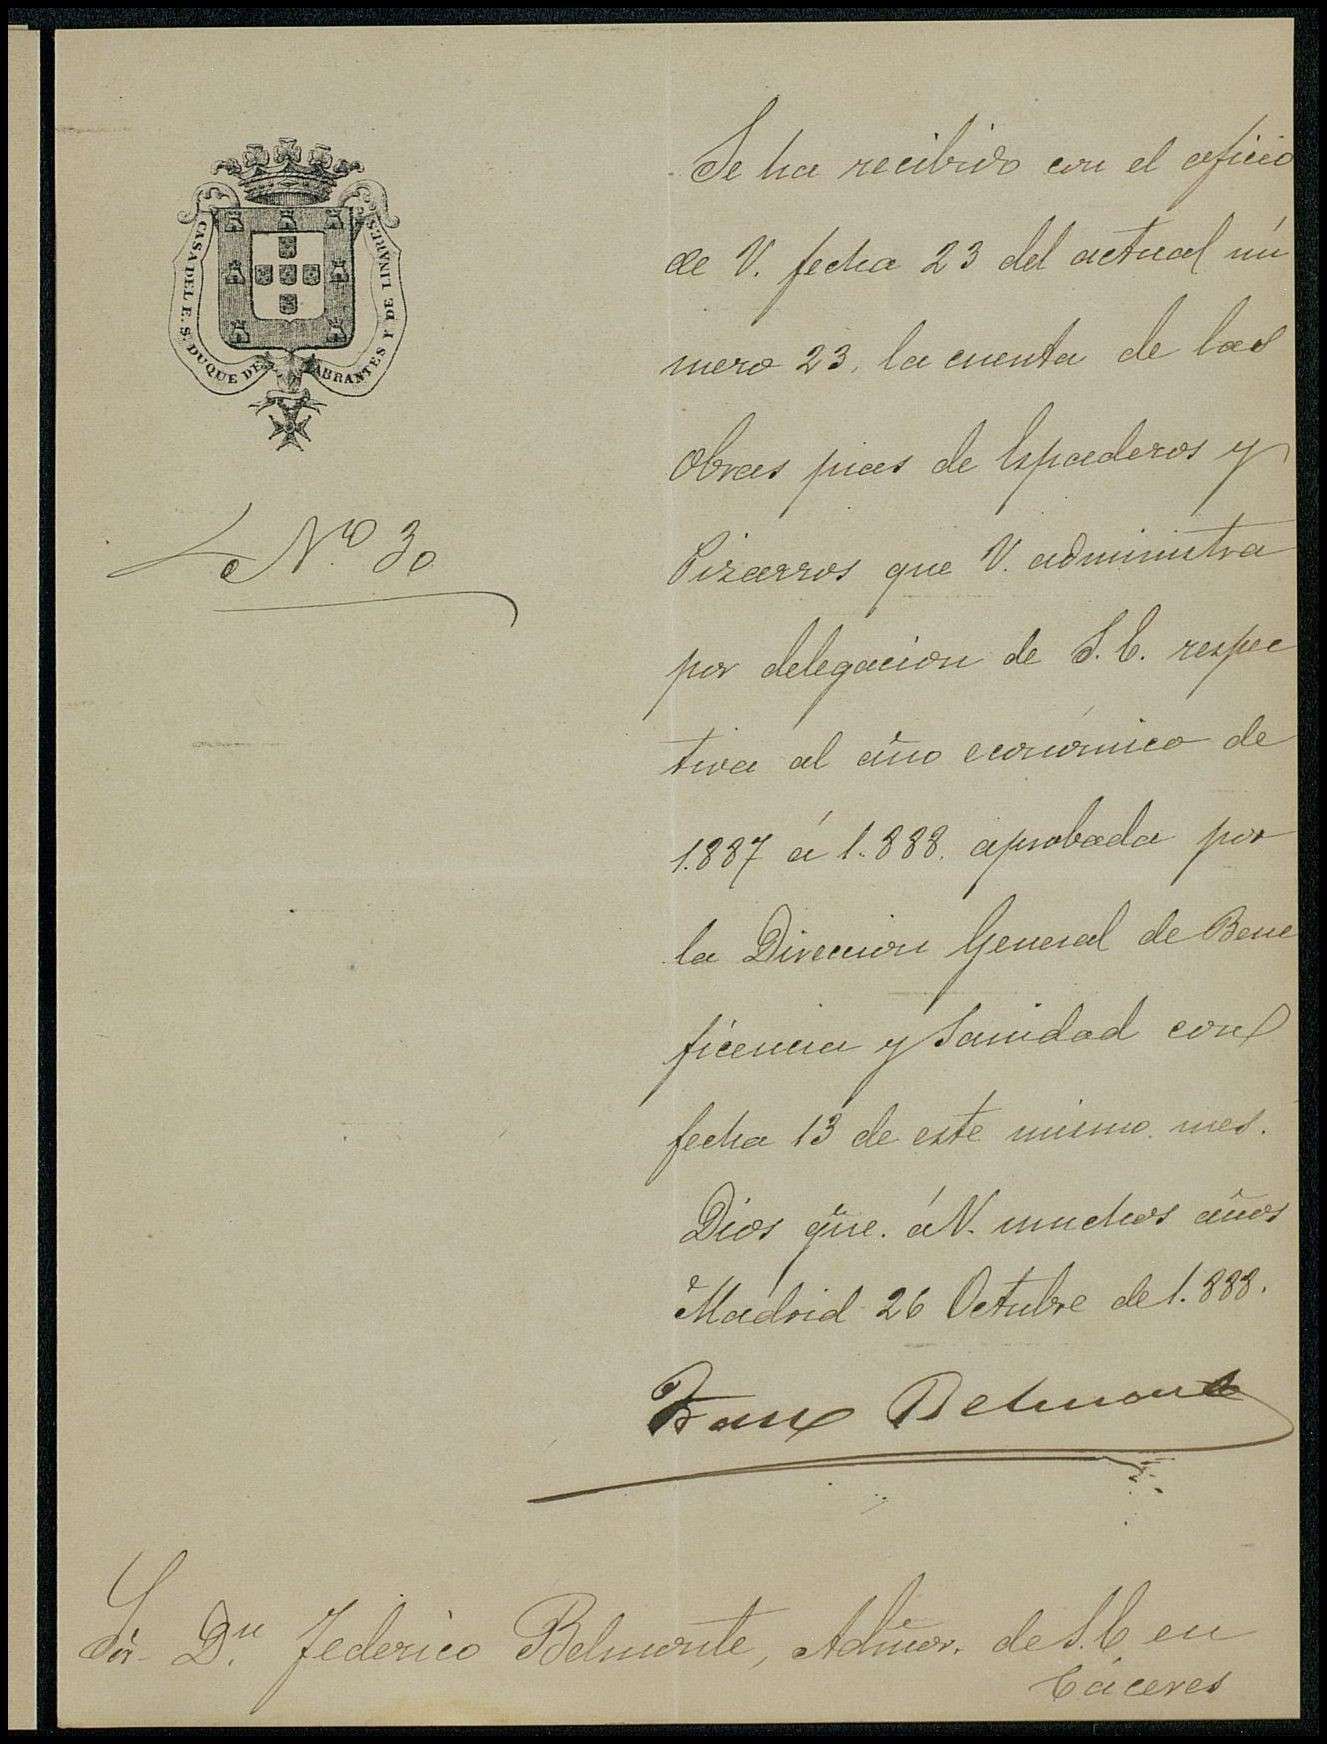 CASA DEL E. S. DUQUE DE ABRANTES Y DE LINARES
Nº 30
Se ha recibido con el oficio
de V. fecha 23 del actual nú
mero 23, la cuenta de las
Obras pias de Espaderos y
Pizarros que V. administra
por delegacion de S. E. respec
tiva al año económico de
1.887 á 1.888. aprobada por
la Direccion General de Bene
ficencia y Sanidad con
fecha 13 de este mismo mes.
Dios gũe. á V. muchos años
Madrid 26 Octubre de 1.888.
Franco Belmonte
Sr. Dn. Federico Belmonte, Admor. de S. E en
Cáceres